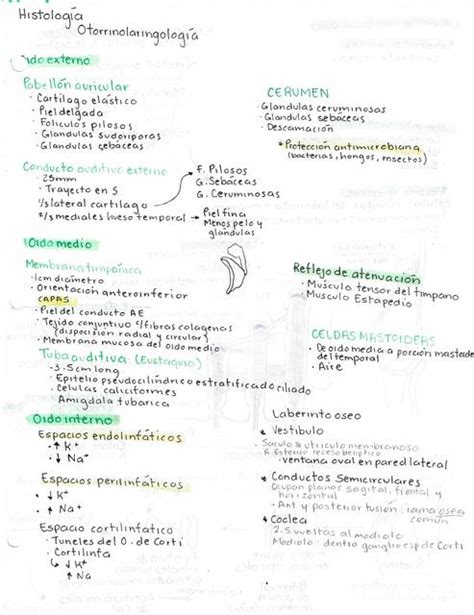 Histología
Otorrinolaringología
oido externo
Pabellón auricular
· Cartilago elástico
· Piel delgada
· Foliculos pilosos
· Glandulas sudoriporas
· Glandulas sebáceas
CERUMEN
· Glandulas ceruminosas
· Glandulas sebáceas
· Descamación
* Protección antimicrobiana
(bacterias, hongos, insectos)
Conducto auditivo externo
· 25mm
· Trayecto en S
1/3 lateral cartilago
2/3 mediales hueso temporal
F. Pilosos
G. Sebáceas
G. Ceruminosas
Piel fina
Menos pelo y
glándulas
Oido medio
Membrana timpánica
· 1cm diámetro
· Orientación anteroinferior
CAPAS
· Piel del conducto AE
· Tejido conjuntivo c/fibras colagenas
(disposición radial y circular)
· Membrana mucosa del oido medio
Reflejo de atenuación
· Músculo tensor del timpano
· Musculo Estapedio
CELDAS MASTOIDEAS
· De oido media a porción mastoide
del temporal
· Aire
Tuba auditiva (Eustaquio)
· 3.5cm long
· Epitelio pseudocilíndrico estratificado ciliado
· Celulas caliciformes
· Amigdala tubarica
Oido interno
Espacios endolinfáticos
· ↑ K+
· ↓ Na+
Espacios perilinfáticos
· ↓ K+
· ↑ Na+
Espacio cortilinfatico
· Tuneles del O. de Corti
· Cortilinfa
↓ K+
↑ Na
Laberinto oseo
* Vestibulo
· Saculo & utriculo membranoso
· ventana oval en pared lateral
* Conductos Semicirculares
Ocupan planos sagital, frontal y
horizontal
· Ant y posterior fusión: rama osea
común
* Coclea
2.5 vueltas al modiolo
Modiolo: dentro ganglio esp de Corti